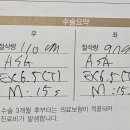 수술요약
우 좌
절삭량 110 um 절삭량 90 um
ASA ASA
EX6.5(T) EX6.5(T)
M: 15s M: 15s
※ 수술 3개월 후부터는 의료보험이 적용되어
진료비가 발생합니다.